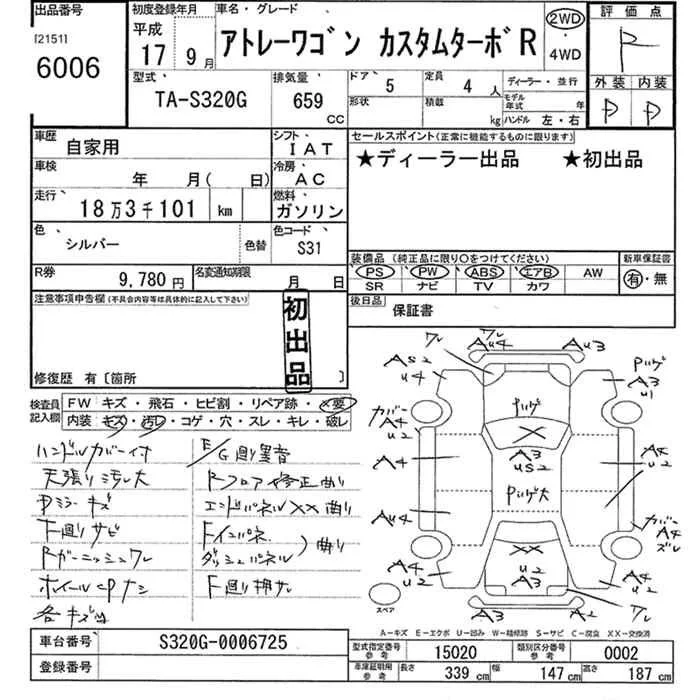 出品番号
[2151]
6006
初度登録年月
平成
17 9月
車名・グレード
アトレーワゴン カスタムターボR
2WD
・
4WD
評価点
R
外装 内装
D D
型式
TA-S320G
排気量
659
CC
ドア 5
定員 4 人
形状
積載 kg
ディーラー・並行
モデル年式 年
ハンドル 左・右
車歴
自家用
シフト
IAT
車検
年 月( 日)
冷房
AC
走行
18万3千101 km
燃料
ガソリン
色
シルバー
色替
色コード
S31
R券
9,780円
名変通知期限
月 日
セールスポイント(正常に機能するものに限ります)
★ディーラー出品 ★初出品
装備品(純正品に限り○をつけてください)
PS PW ABS エアB AW
SR ナビ TV カワ
新車保証書
有・無
後日品
保証書
注意事項申告欄(不具合内容等は具体的に記入して下さい)
初出品
修復歴 有〔箇所 〕
検査員記入欄
FW キズ・飛石・ヒビ割・リペア跡・×要
内装 キズ・汚レ・コゲ・穴・スレ・キレ・破レ
ハンドルカバー付
天張り汚レ大
Dミラーキズ
下廻りサビ
Rガーニッシュワレ
ホイールCPナシ
各キズ凹
E/G廻り異音
Rフロア修正曲り
エンドパネルXX曲り
Fインパネ
ダッシュパネル
)曲り
下廻り押サレ
ワレ
ワレ
AU4
AU3
AS2
U4
ハゲ
A3
U1
ハゲ
カバー
A4
U2
X
A3
US2
A4
A4
U2
ハゲ大
AU4
カバー
A4
ズレ
XX
A4
U2
U2
A3
A4
U2
ワレ
AU3
A2
スペア
A-キズ E-エクボ U-凹み W-補修跡 S-サビ C-腐食 XX-交換済
車台番号
S320G-0006725
登録番号
型式指定番号
参考
15020
類別区分番号
参考
0002
車庫証明用
参考
長さ 339 cm
幅 147 cm
高さ 187 cm